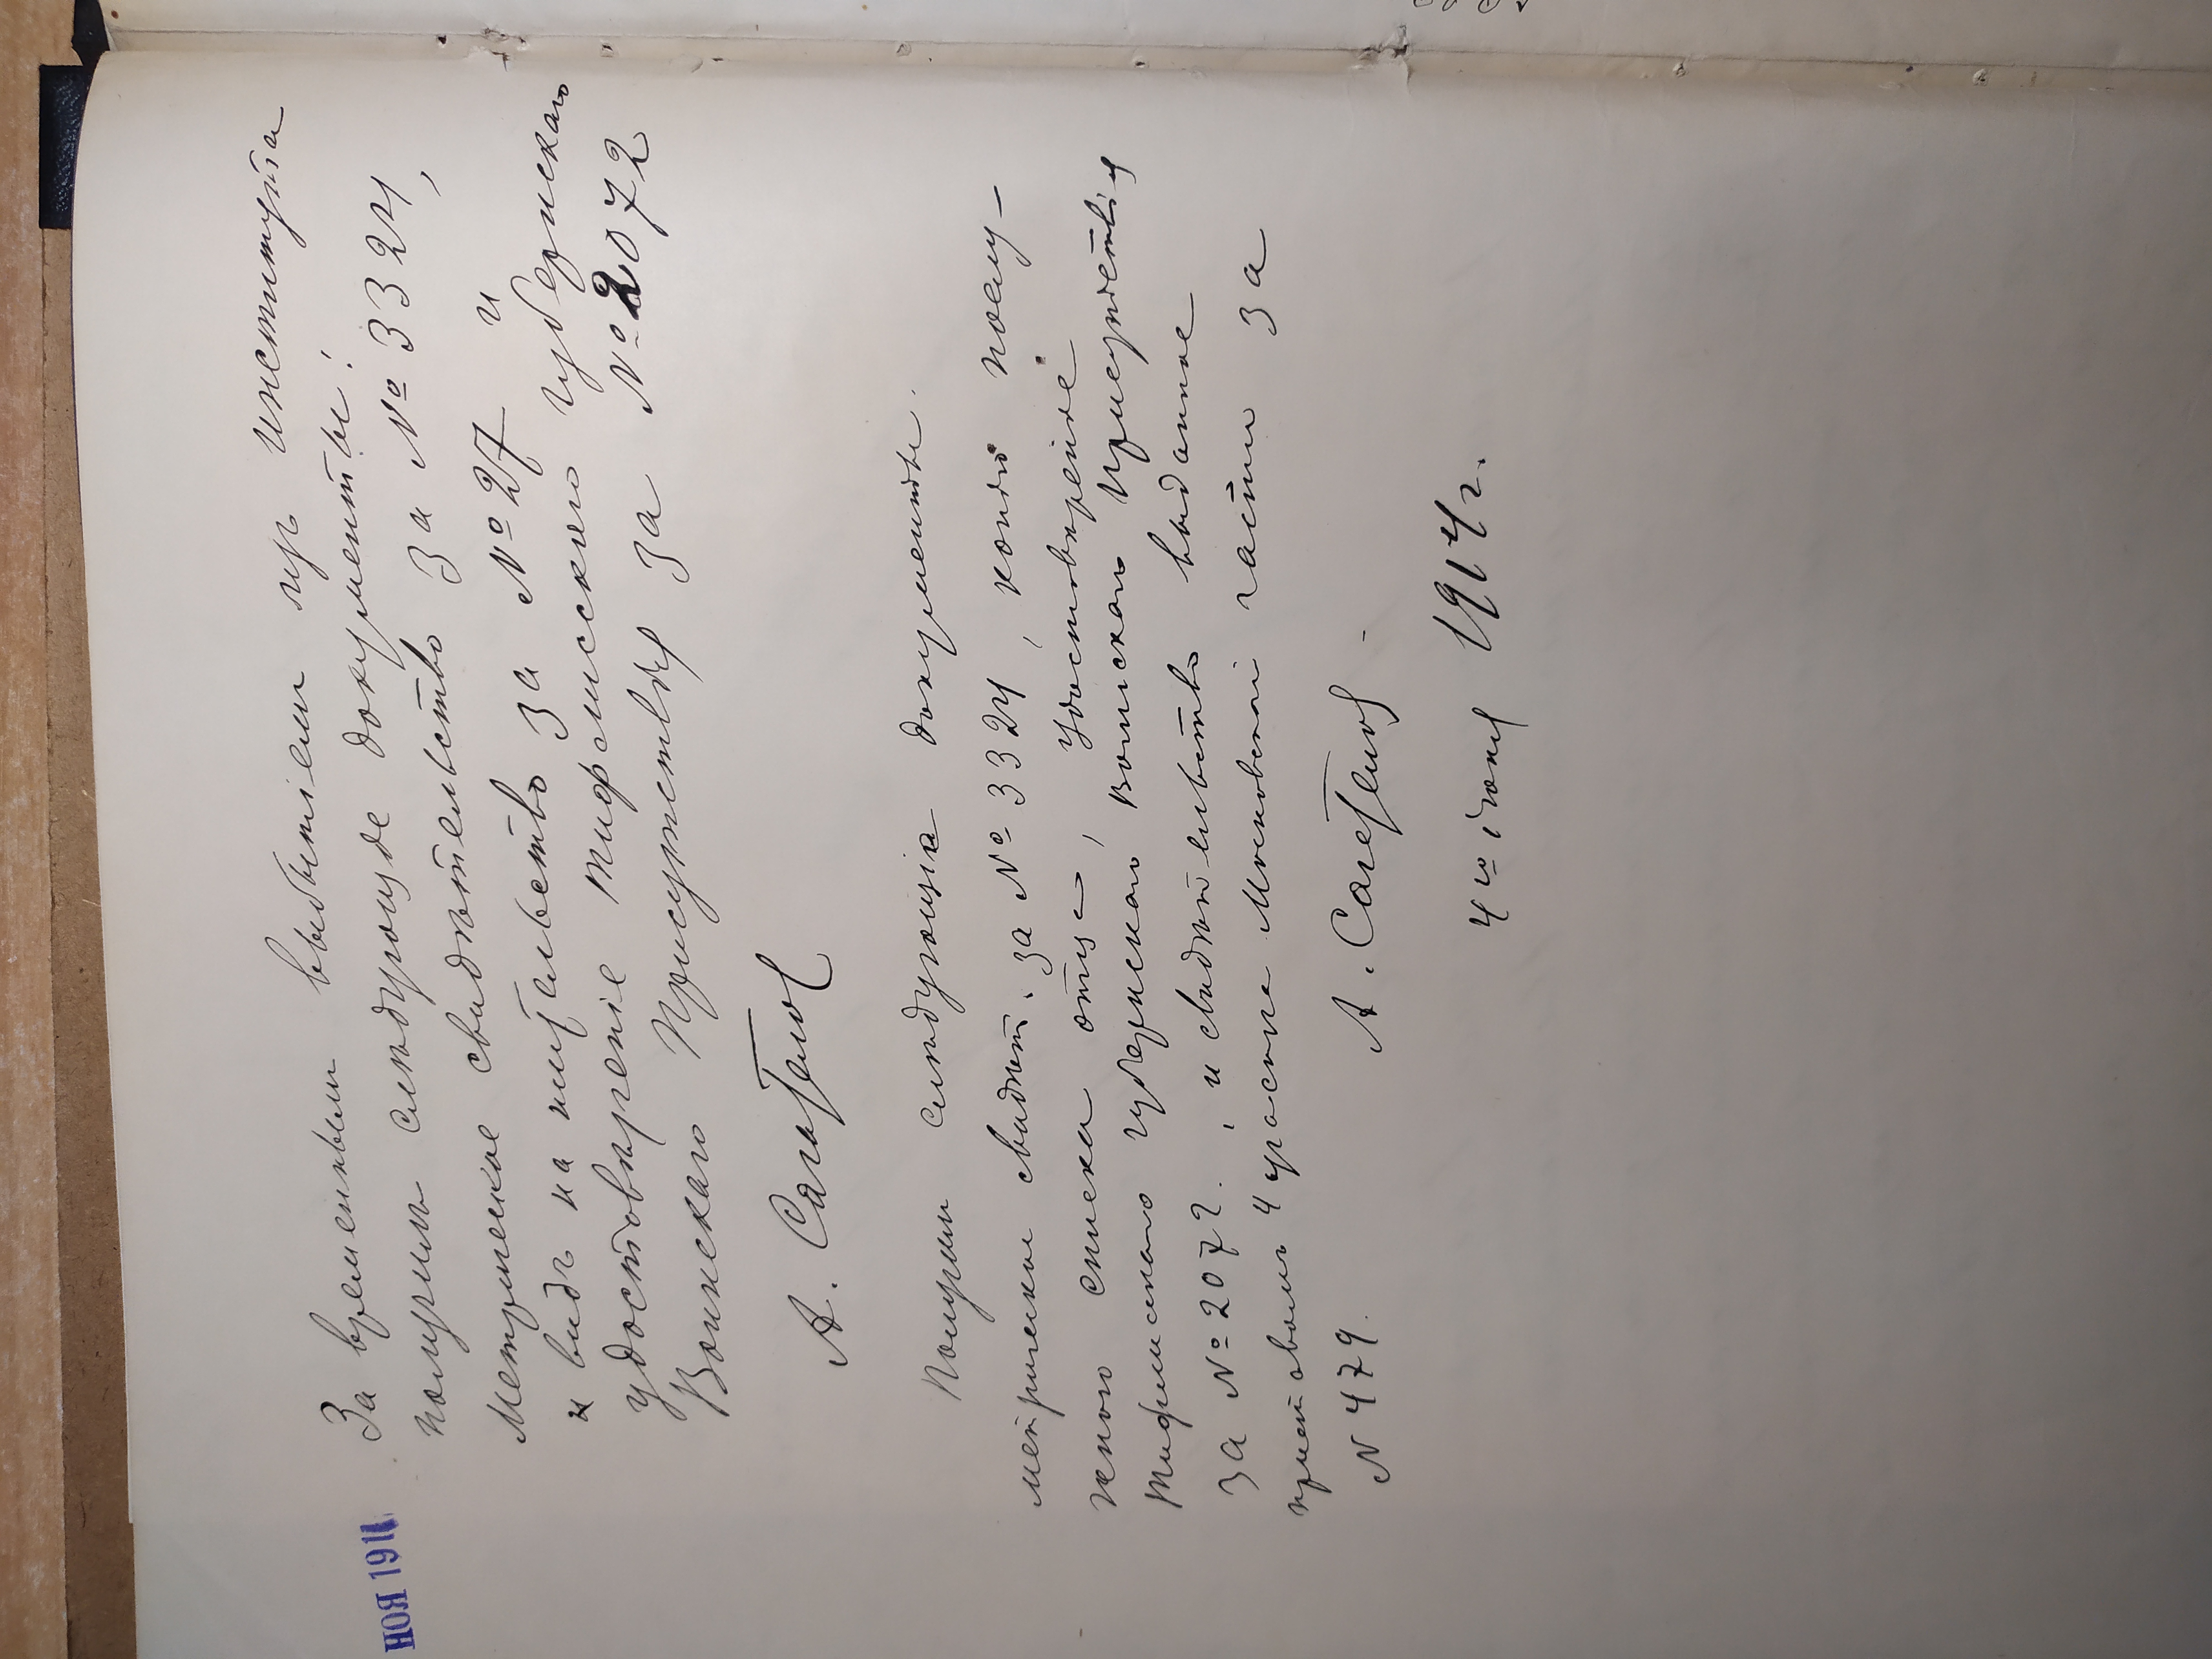 НОЯ 191
За временным выбытіем изъ института
получилъ слѣдующіе документы:
Метрическое свидѣтельство за № 3324,
и видъ на жительство за № 27 и
удостовѣреніе Тифлисскаго губернскаго
Воинскаго Присутствія за № 2072
А. Сагателов
Получил слѣдующіе документы.
метрическое свидѣт. за № 3324, копію послу-
жного списка отца, удостовѣреніе
Тифлисскаго губернскаго Воинскаго Присутствія
за № 2072. и свидѣтельство выданное
приставомъ 4 участка Московской части за
N 479.
А. Сагателов
4го іюня 1914 г.